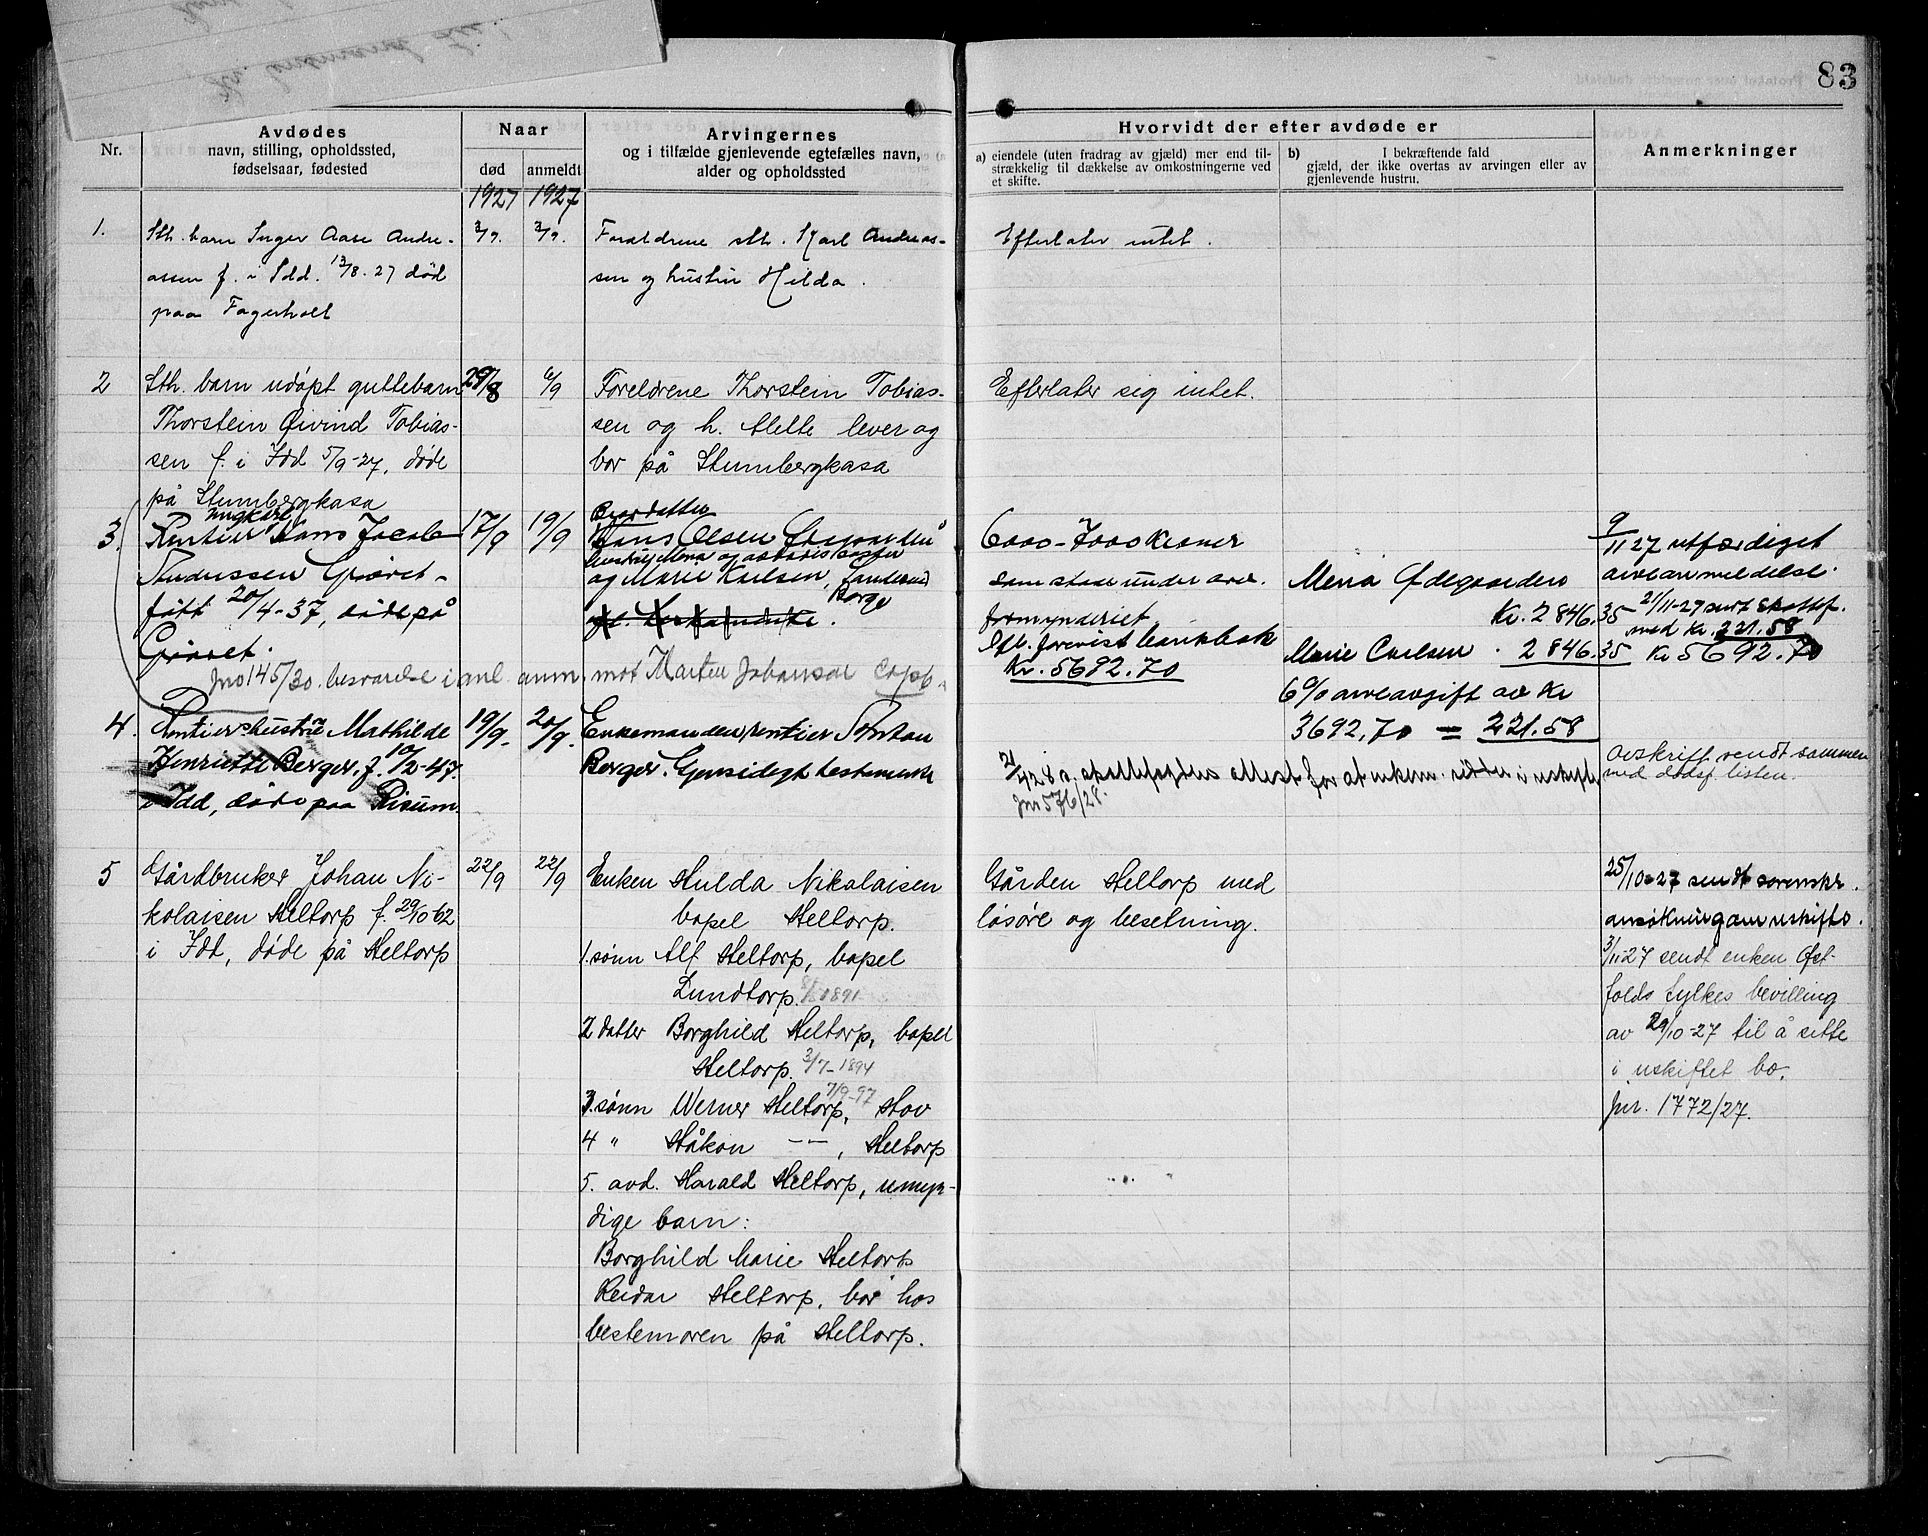 83
Nr.
Avdødes
navn, stilling, opholdssted,
fødselsaar, fødested
Naar
død
anmeldt
Arvingernes
og i tilfælde gjenlevende egtefælles navn,
alder og opholdssted
Hvorvidt der efter avdøde er
a) eiendele (uten fradrag av gjæld) mer end til-
strækkelig til dækkelse av omkostningerne ved
et skifte.
b) I bekræftende fald
gjæld, der ikke overtas av arvingen eller av
gjenlevende hustru.
Anmerkninger
1927 1927
1.
Sth. barn Inger Aase Andre-
assen f. i Idd. 13/8-27 død
paa Fagerholt
3/9. 3/9.
Foraldrene sth. Karl Andreas-
sen og hustru Hilda.
Efterlater intet.
2
Sth. barn udøpt guttebarn
Thorstein Øivind Tobias-
sen f. i Idd 5/9-27, døde
på Stumbergkasa
29/8 6/9
Foreldrene Thorstein Tobias-
sen og h. Alette lever og
bor på Stumbergkasa
Efterlater sig intet.
3.
ungkarl
Rentier Hans Jacob
Andressen Grøret
født 20/4-37, døde på
Grøret.
17/9 19/9
Brordatter
Hans Olsen
og Marie Karlsen,
Borge
6000-7000 kroner
som staar under over-
formynderiet
bankbok
Kr. 5692.70
Mena Ødegaarden
Kr. 2846.35
Marie Carlsen . 2846.35
6% arveavgift av Kr
3692,70 = 221.58
9/11 27 utfærdiget
arveanmeldelse.
21/11-27 surt skattef.
med Kr. 221.58
Kr 5692.70
Jno 145/30. besvarelse i anl. anm. mot Marten Johansen
4.
Rentiershustru Mathilde
Henriette Berger, f. 10/2-47.
i Idd, døde paa Risum.
19/9- 20/9-
Enkemanden, rentier Anton
Berger. Gjensidigt testamente
21/4 28 a. skattefogdens attest for at enkem. sitter i uskifte
Jnr 576/28.
avskrift sendt sammen
med dødsf. listen.
5
Gårdbruker Johan Ni-
kolaisen Heltorp f. 29/10 62
i Idd, døde på Heltorp
22/9 22/9
Enken Hulda Nikolaisen
bopel Heltorp.
1. sønn Alf Heltorp, bopel
Lundtorp. 1891
2 datter Borghild Heltorp, bopel
Heltorp. 3/7-1894
3. sønn Werner Heltorp, 7/9-97 Hov
4 " Håkon -"-, Heltorp
5. avd. Harald Heltorp, umyn-
dige barn:
Borghild Marie Heltorp
Reidar Heltorp, bor hos
bestemoren på Heltorp.
Gården Heltorp med
løsøre og besetning.
25/10-27 sendt sorenskr.
ansøkning om uskifte.
3/11-27 sendt enken Øst-
folds fylkes bevilling
av 29/10-27 til å sitte
i uskiftet bo.
Jnr. 1772/27.